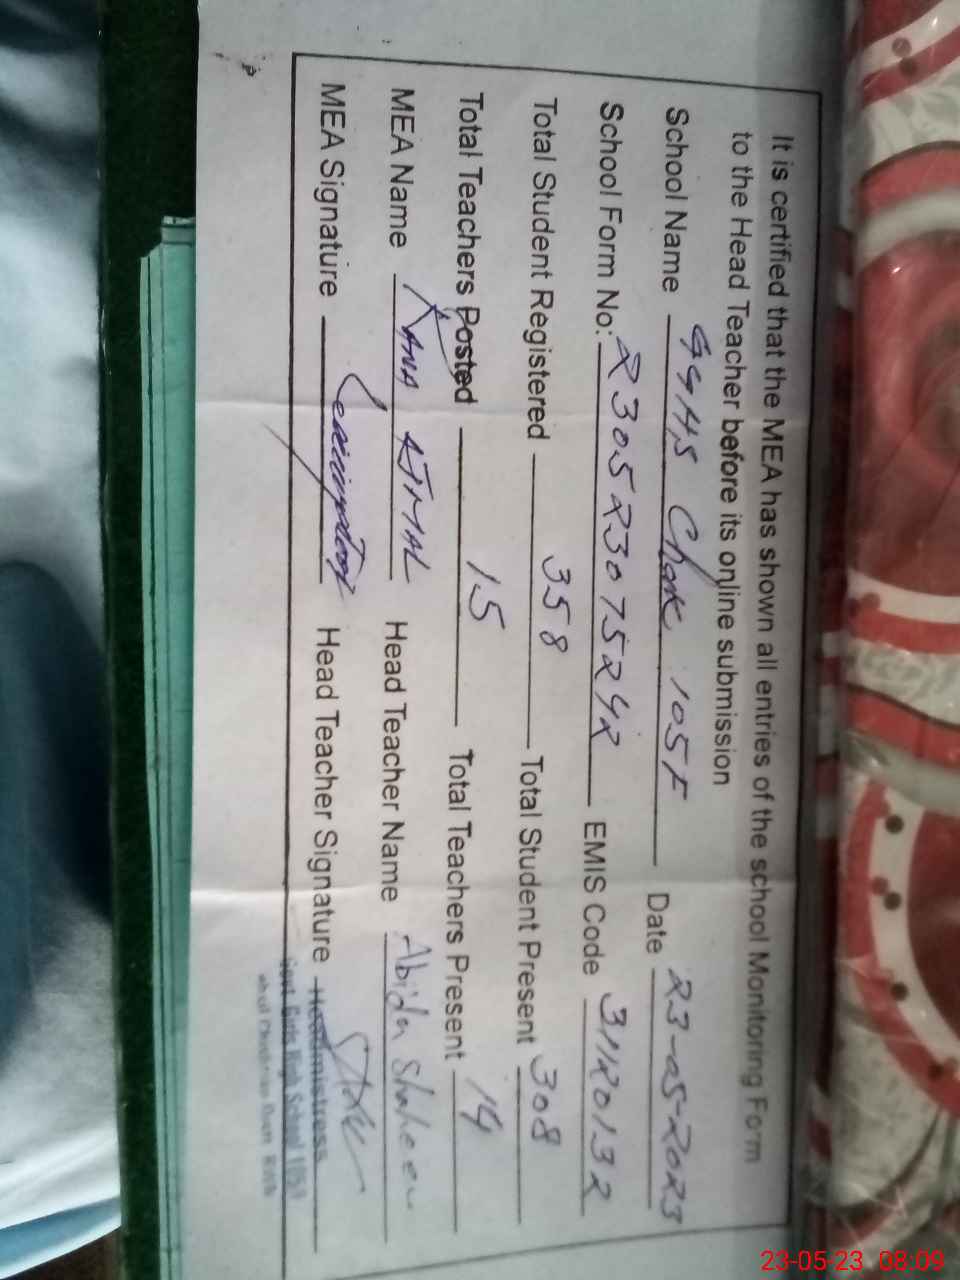 It is certified that the MEA has shown all entries of the school Monitoring Form
to the Head Teacher before its online submission
School Name GGHS Chak 105F Date 23-05-2023
School Form No: 230523075242 EMIS Code 31120132
Total Student Registered 358 Total Student Present 308
Total Teachers Posted 15 Total Teachers Present 14
MEA Name RANA AJMAL Head Teacher Name Abida Shaheen
MEA Signature Head Teacher Signature
Headmistress
Govt Girls High School 105F
23-05-23 08:09